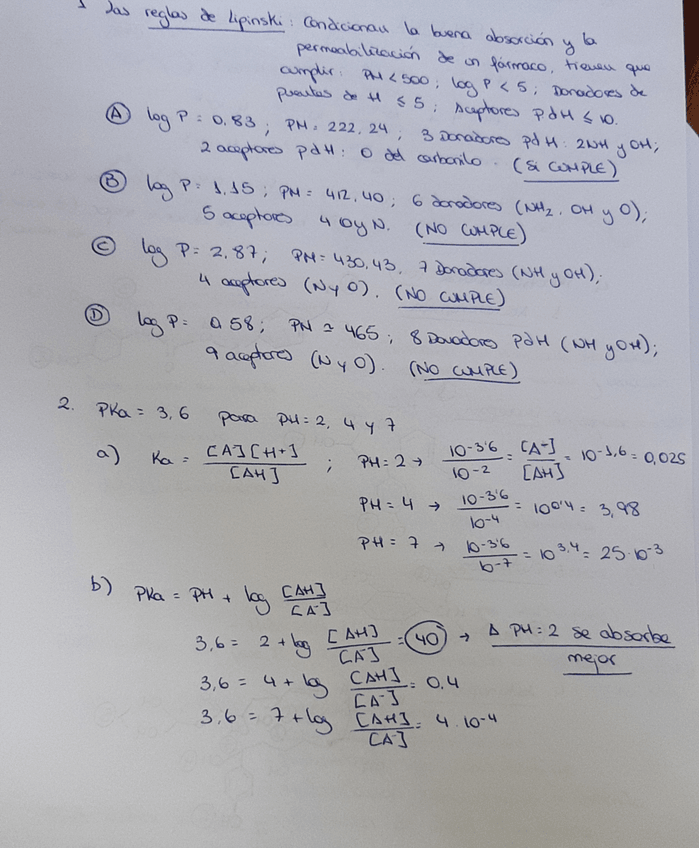 1 Las reglas de Lipinski: Condicionan la buena absorción y la
permeabilización de un fármaco, tienen que
cumplir: PM < 500; log P < 5; Donadores de
puentes de H ≤ 5; Aceptores PdH ≤ 10.
A log P = 0,83; PM = 222,24; 3 Donadores PdH: 2NH y OH;
2 aceptores PdH: O del carbonilo. (SI CUMPLE)
B log P = 1,15; PM = 412,40; 6 donadores (NH2, OH y O);
5 aceptores 4 O y N. (NO CUMPLE)
C log P = 2,87; PM = 430,43. 7 Donadores (NH y OH);
4 aceptores (N y O). (NO CUMPLE)
D log P = 0,58; PM ≃ 465; 8 Donadores PdH (NH y OH);
9 aceptores (N y O). (NO CUMPLE)
2. PKa = 3,6 para PH = 2, 4 y 7
a) Ka = [A⁻][H+] / [AH] ; PH = 2 → 10^-3'6 / 10^-2 = [A⁻] / [AH] = 10^-1,6 = 0,025
PH = 4 → 10^-3'6 / 10^-4 = 10^0'4 = 3,98
PH = 7 → 10^-3'6 / 10^-7 = 10^3,4 = 25·10^-3
b) PKa = PH + log [AH] / [A⁻]
3,6 = 2 + log [AH] / [A⁻] = 40 → A PH = 2 se absorbe mejor
3,6 = 4 + log [AH] / [A⁻] = 0,4
3,6 = 7 + log [AH] / [A⁻] = 4·10^-4